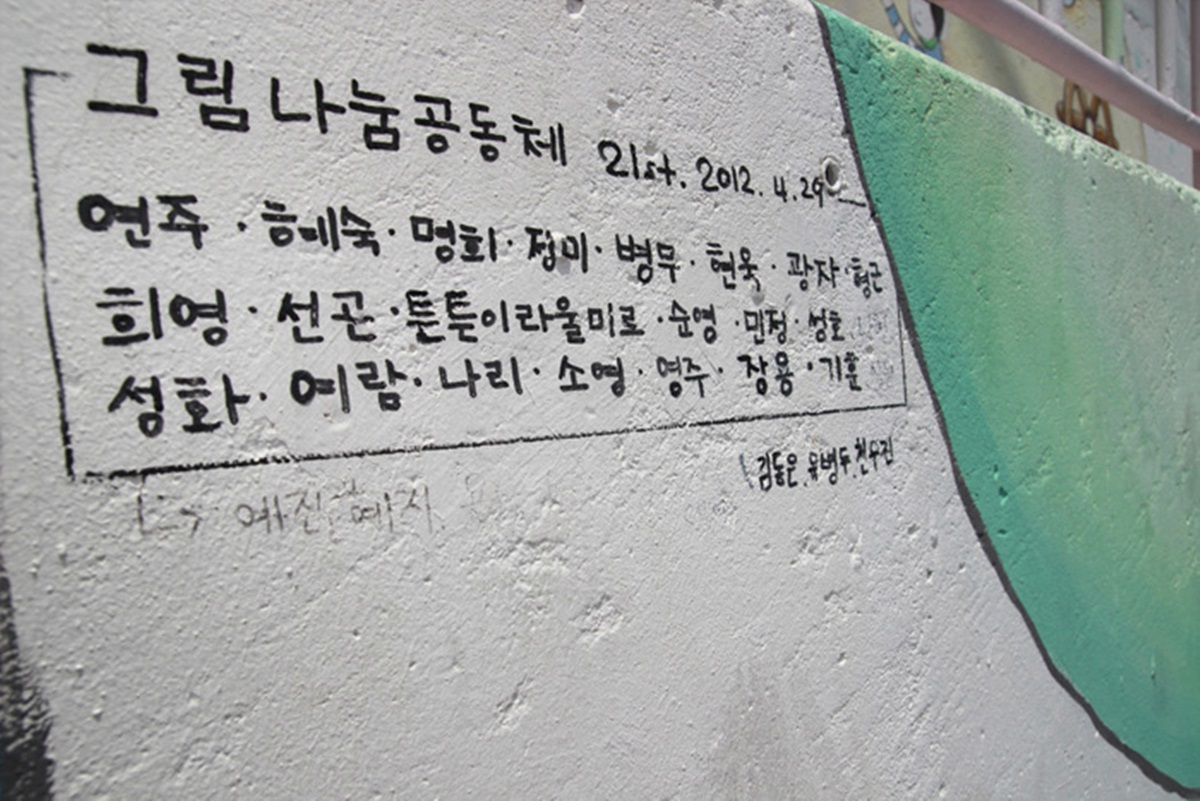 그림나눔공동체 21st. 2012. 4. 29
연주 · 혜숙 · 명희 · 정미 · 병무 · 현욱 · 광자 · 형근
희영 · 선곤 · 튼튼이라울미로 · 순영 · 민정 · 성호
성화 · 예람 · 나리 · 소영 · 영주 · 장용 · 기훈
김동은. 유병두. 천우진
예진. 예지